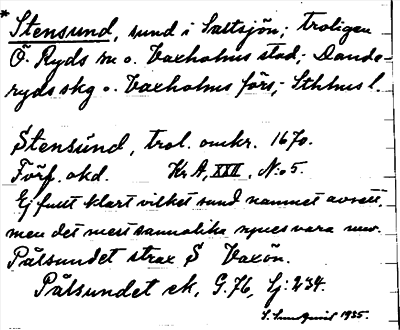 * Stensund, sund i Saltsjön; troligen
Ö. Ryds sn o. Vaxholms stad; Dande-
ryds skg o. Vaxholms förs; Sthlms l.
Stensund, trol. omkr. 1670.
Förf. okd. Kr A, XXII, N:o 5.
Ej fullt klart vilket sund namnet avsett,
men det mest sannolika synes vara nuv.
Pålsundet strax S Vaxön.
Pålsundet ek, G:76, Lj:234.
1935.